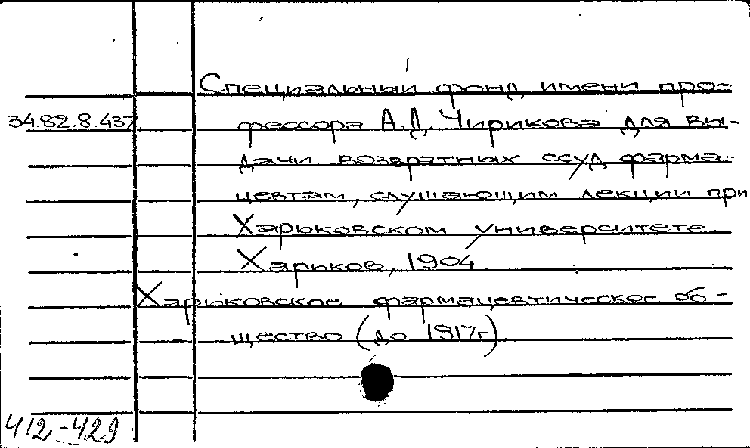 Специальный фонд имени про-
34.82.8.437 фессора А.Д. Чирикова для вы-
дачи возвратных ссуд фарма-
цевтам, слушающим лекции при
Харьковском университете.
Харьков, 1904.
Харьковское фармацевтическое об-
щество (до 1917г)
412-429